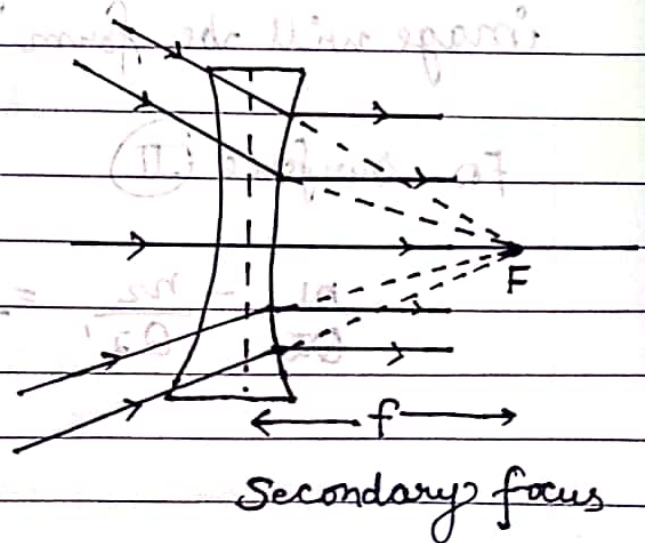 F
f
Secondary focus